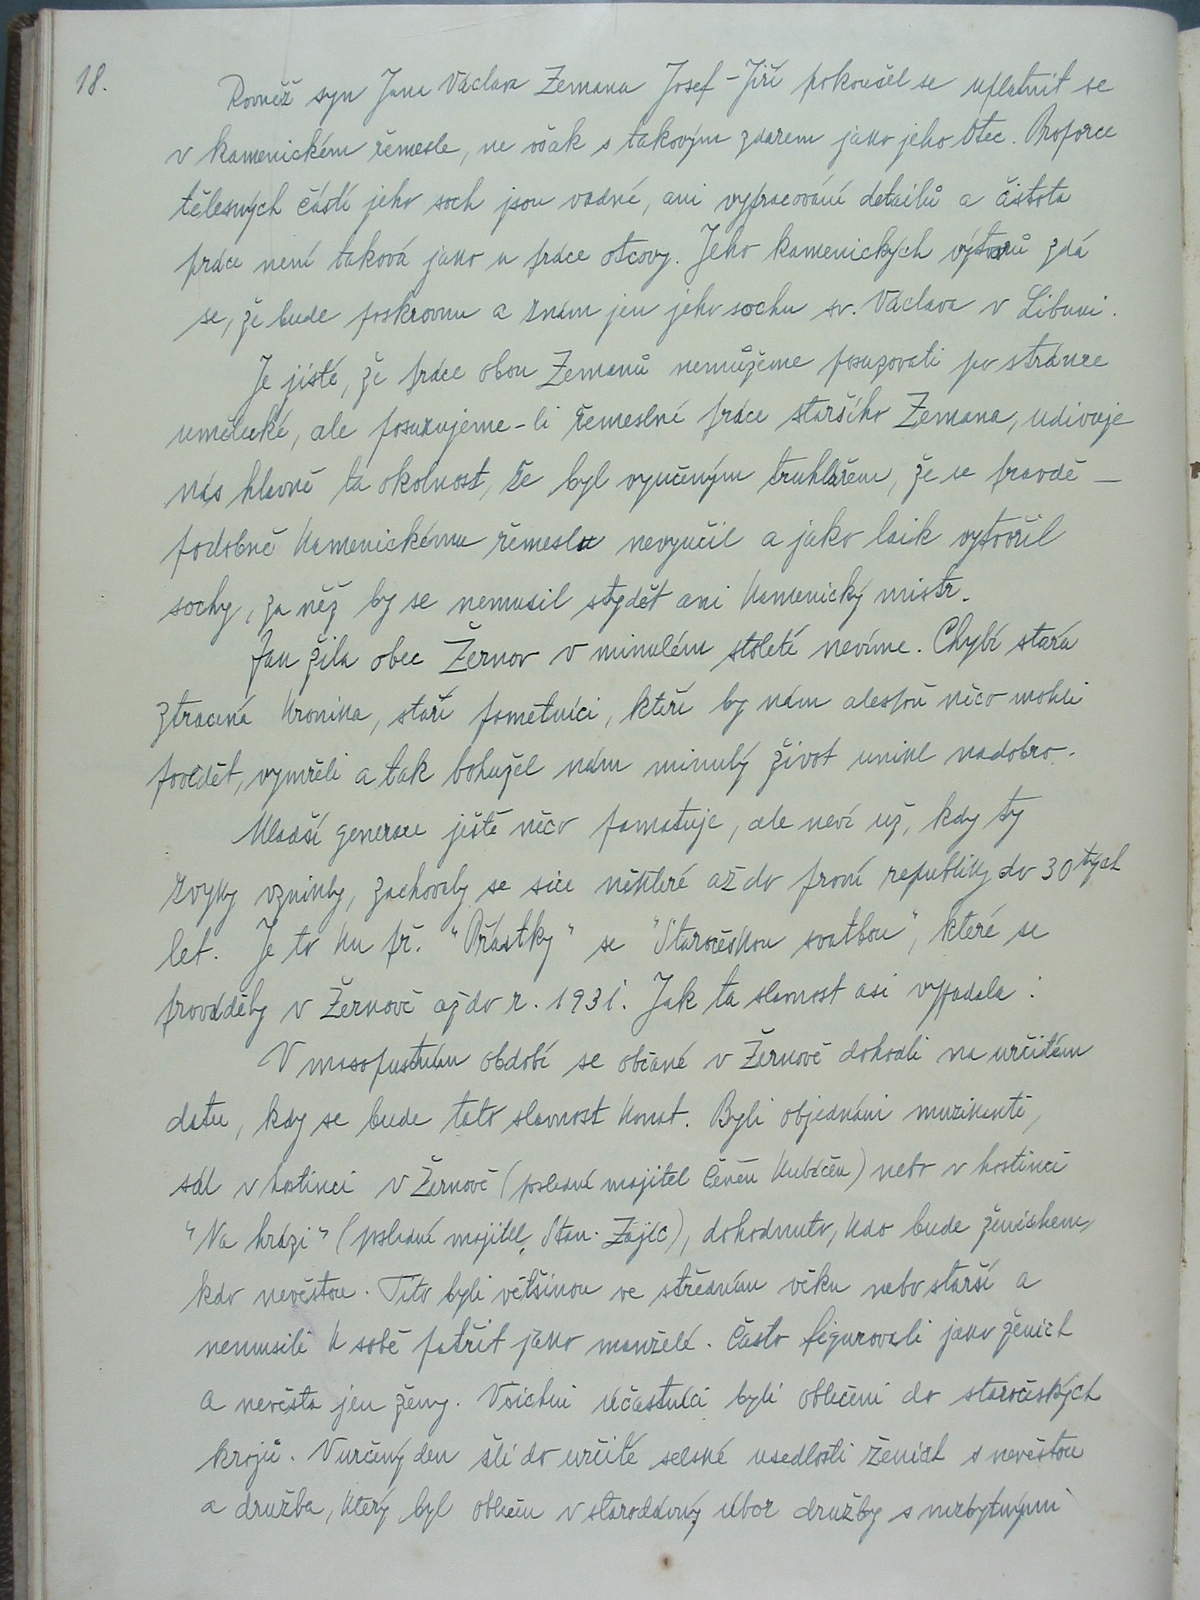 18.
Rovněž syn Jana Václava Zemana Josef-Jiří pokoušel se uplatnit se
v kamenickém řemesle, ne však s takovým zdarem jako jeho otec. Proporce
tělesných částí jeho soch jsou vadné, ani vypracování detailů a čistota
práce není taková jako u práce otcovy. Jeho kamenických výtvorů zdá
se, že bude poskrovnu a znám jen jeho sochu sv. Václava v Libuni.
Je jisté, že práce obou Zemanů nemůžeme posuzovati po stránce
umělecké, ale posuzujeme-li řemeslné práce staršího Zemana, udivuje
nás hlavně ta okolnost, že byl vyučeným truhlářem, že se pravdě-
podobně kamenickému řemeslu nevyučil a jako laik vytvořil
sochy, za něž by se nemusil stydět ani kamenický mistr.
Jak žila obec Žernov v minulém století nevíme. Chybí stará
ztracená kronika, staří pametníci, kteří by nám alespoň něco mohli
povědět, vymřeli a tak bohužel nám minulý život unikl nadobro.
Mladší generace ještě něco pamatuje, ale neví už, kdy ty
zvyky vznikly, zachovaly se sice některé až do první republiky do 30tých
let. Je to ku př. "Přástky" se "Staročeskou svatbou", které se
prováděly v Žernově až do r. 1931. Jak ta slavnost asi vypadala:
V masopustním období se občané v Žernově dohodli na určitém
datu, kdy se bude tato slavnost konat. Byli objednáni muzikanti,
sál v hostinci v Žernově (poslední majitel Čeněk Kubíček) nebo v hostinci
"Na hrázi" (poslední majitel Stan. Zajíc), dohodnuto, kdo bude ženichem,
kdo nevěstou. Tito byli většinou ve středním věku nebo starší a
nemusili k sobě patřit jako manželé. Často figurovali jako ženich
a nevěsta jen ženy. Všichni účastníci byli oblečeni do staročeských
krojů. V určený den šli do určité selské usedlosti ženich s nevěstou
a družba, který byl oblečen v starodávný úbor družby s nezbytnými